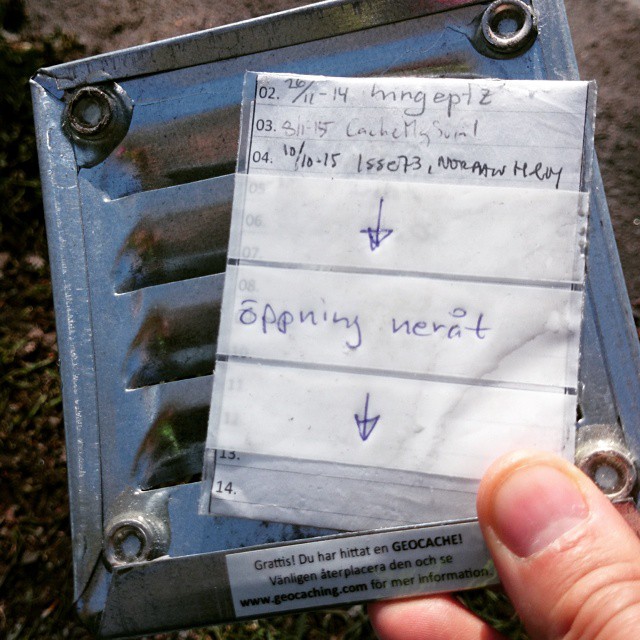 02. 26/11-14 hingeplz
03. 8/1-15 CacheMySval
04. 10/10-15 Isso73,
05
06
07
08
öppning neråt
11
13.
14.
Grattis! Du har hittat en GEOCACHE!
Vänligen återplacera den och se
www.geocaching.com för mer information